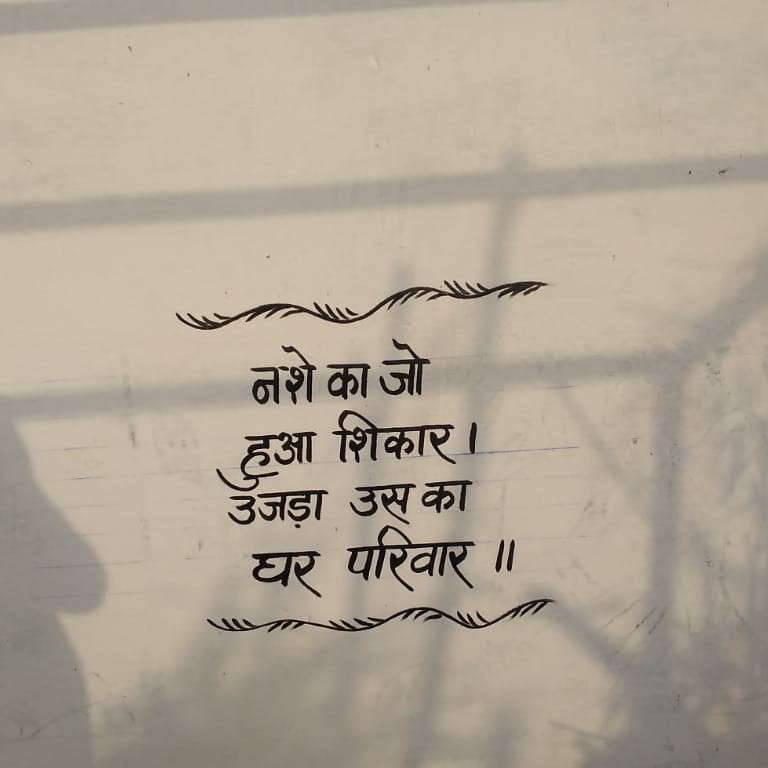 नशे का जो
हुआ शिकार।
उजड़ा उस का
घर परिवार॥